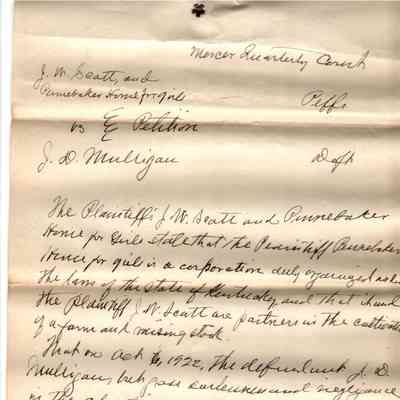 Mercer Quarterly Court
J. W. Scatt, and
Punnebaker Home for girls Plffs
vs Petition
J. D. Mulligan Deft
The Plaintiffs J. W. Scatt and Pinnebaker
Home for Girls state that the Plaintiff Punebaker
Home for girls is a corporation duly organized under
the laws of the State of Kentucky and that it and
the Plaintiff J. W. Scatt are partners in the
of a farm and raising stock.
That on Oct 6, 1922, the defendant J. D.
Mulligan, by gross carlessness and negligence
in the